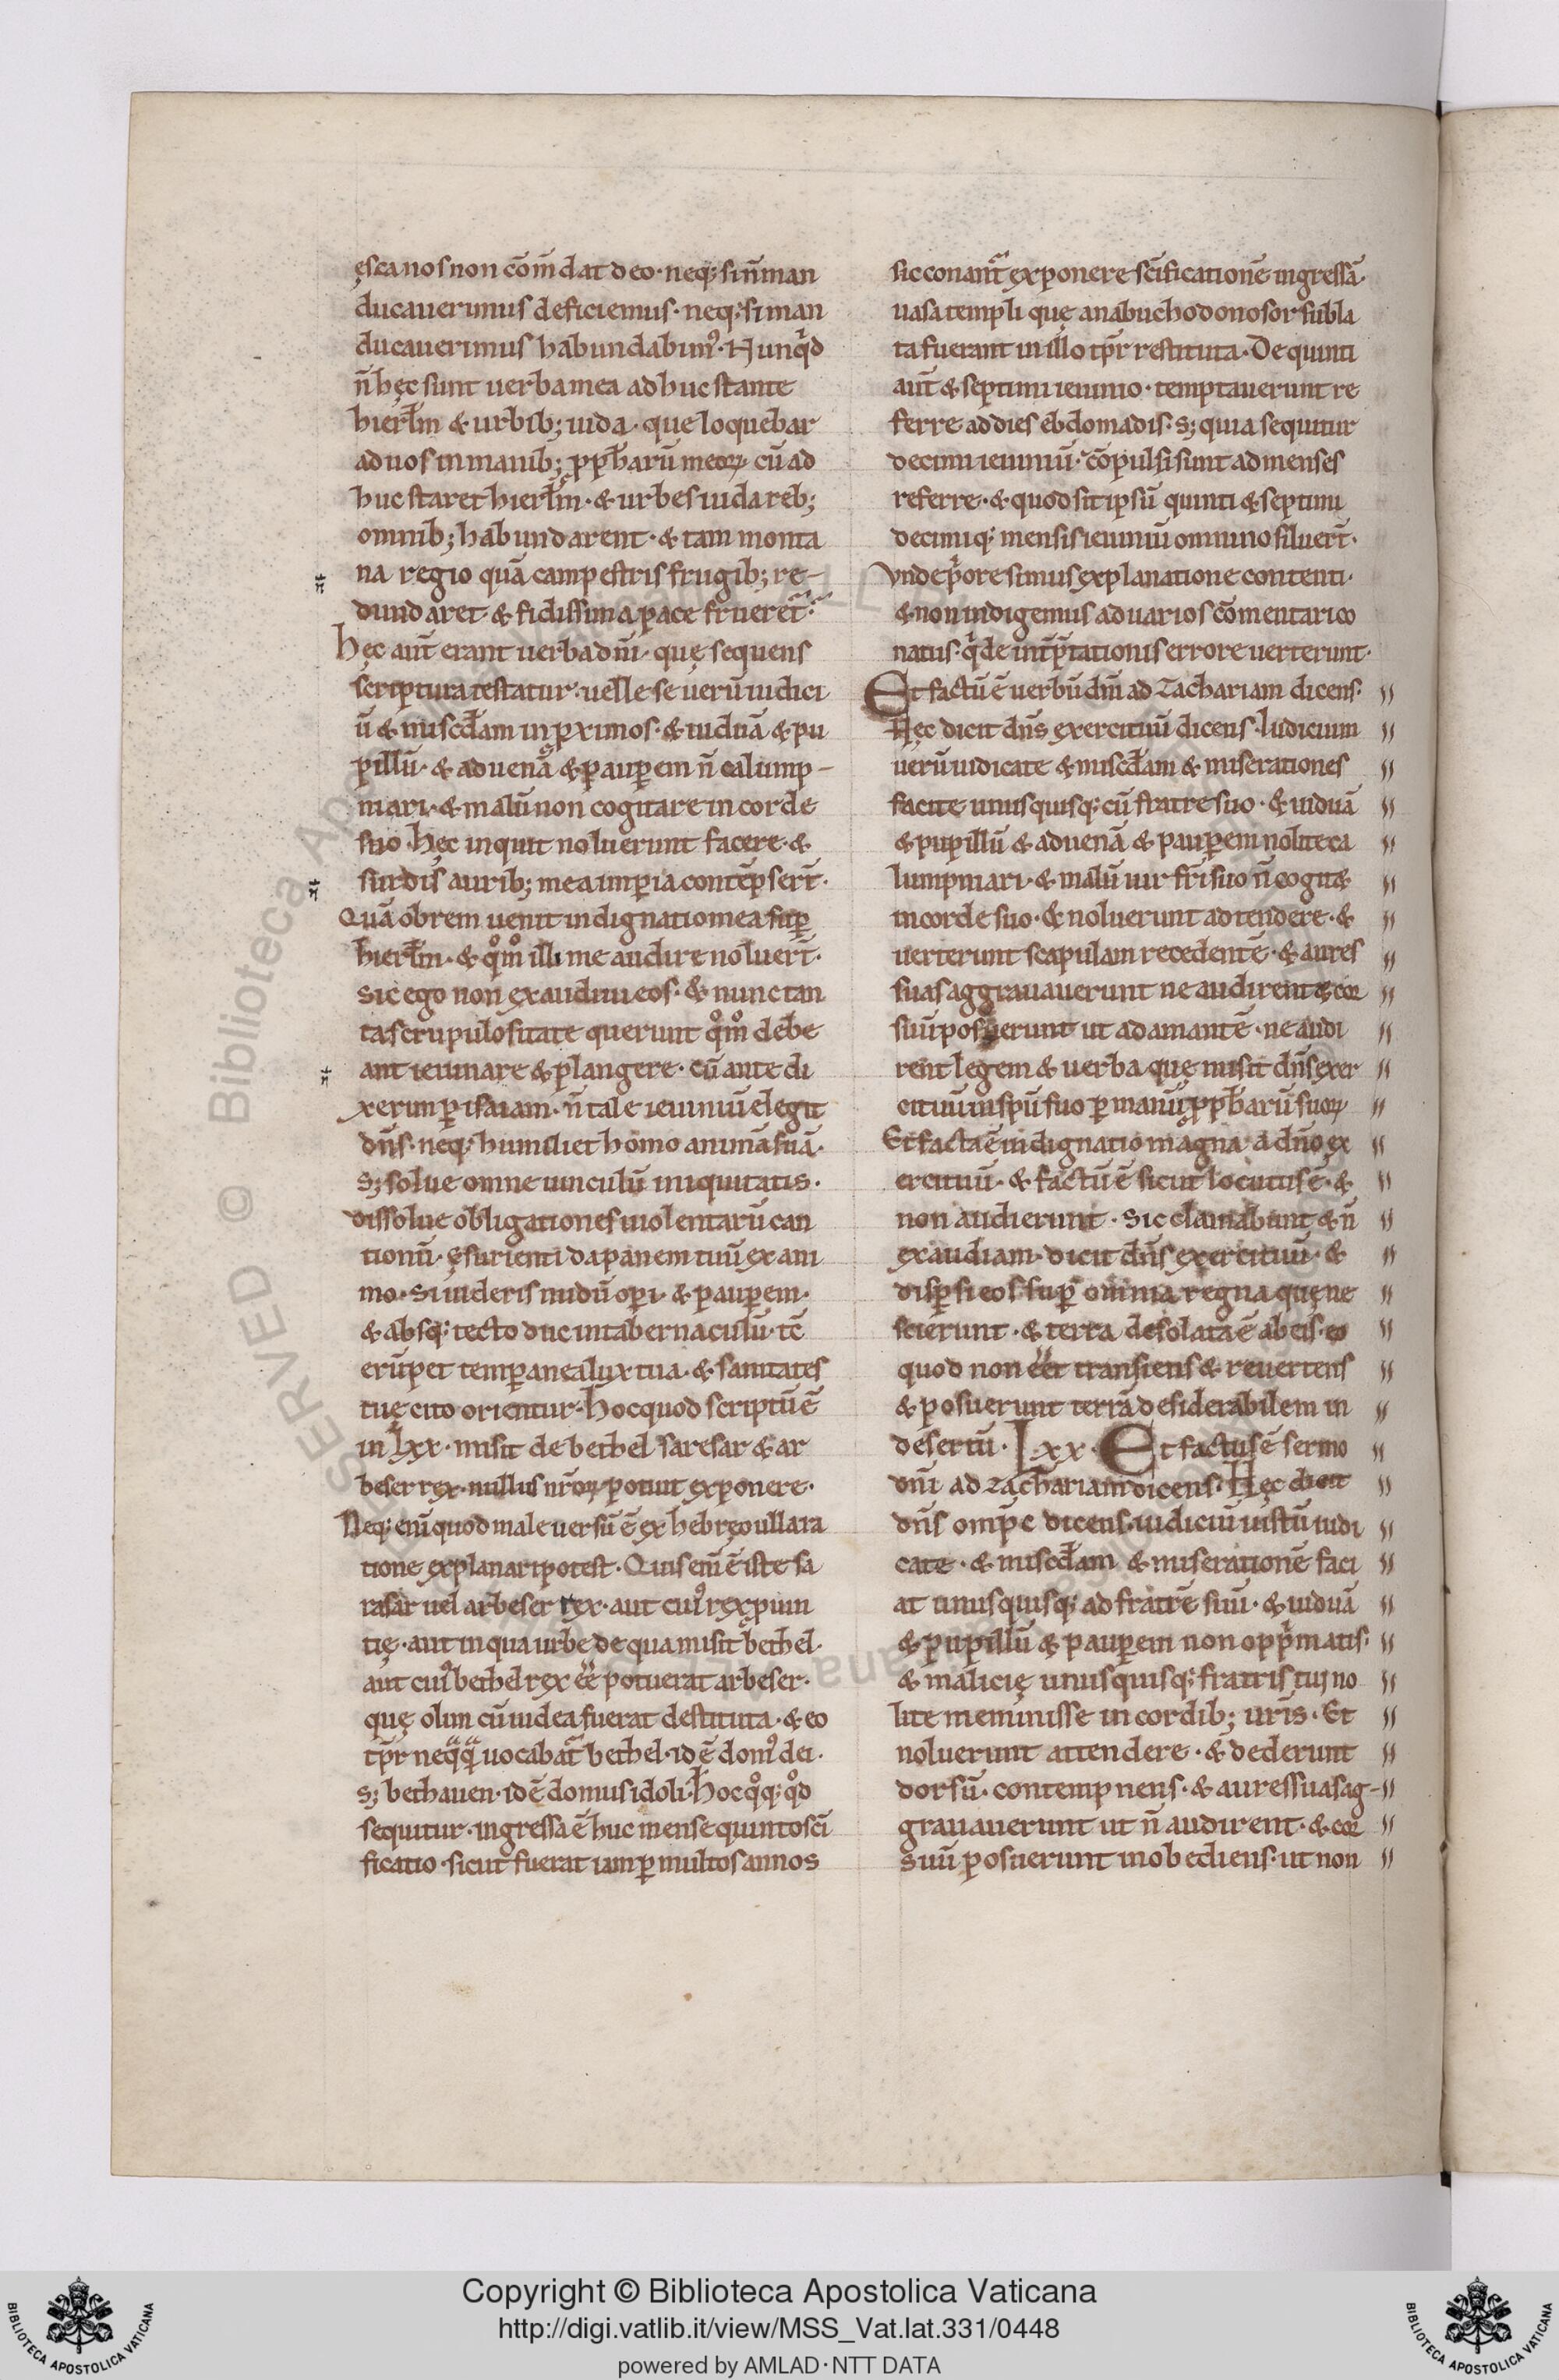 ęsca nos non cōm̄dat deo· neq; si n̄ man
ducauerimus deficiemus· neq; si man
ducauerimus habundabim᷒· Nunqͥd
n̄ hęc sunt uerba mea adhuc stante
hierl̄m & urbib; iuda· que loquebar
ad uos in manib; ꝓph̄arū meoꝝ cū ad
huc staret hierl̄m· & urbes iuda reb;
omnib; habundarent· & tam monta
na regio quā campestris frugib; re-
dundaret· & fidissima pace frueret᷑·
Hęc aūt erant uerba dn̄i· quę sequens
scriptura testatur· uelle se uerū iudici
ū & misc̄dam in ꝓximos· & uiduā & pu
pillū· & aduenā & pauꝑem n̄ calump-
niari· & malū non cogitare in corde
suo· Hęc inquit noluerunt facere· &
surdis aurib; mea imꝑia contēpserī·
Quā obrem uenit indignatio mea suꝑ
hierl̄m· & qm̊ illi me audire noluerī·
sic ego non exaudiui eos· & nunc tan
ta scrupulositate querunt qm̊ debe
ant ieiunare & plangere· cū ante di
xerim ꝑ isaiam· n̄ tale ieiuniū elegit
dn̄s· neq; humiliet homo animā suā·
s; solue omne uinculū iniquitatis·
dissolue obligationes uiolentarū can
tionū· ęsurienti da panem tuū ex ani
mo· si uideris nudū oꝑi· & pauꝑem·
& absq; tecto duc in tabernaculū· tc̄
erūpet temꝑanea lux tua· & sanitates
tuę cito orientur· Hoc quod scriptū ē
in Lxx· misit de bethel saresar & ar
beser rex· nullus nr̄oꝝ potuit exponere·
Neq; enī quod male uersū ē ex hebręo ulla ra
tione explanari potest· Quis enī ē iste sa
rasar uel arbeser rex· aut cui᷒ rex pun
tię· aut in qua urbe de qua misit bethel·
aut cui᷒ bethel rex ēē potuerat arbeser·
quę olim cū iudea fuerat destituta· & eo
tp̄r neqͣqͣ uocabat᷑ bethel· id ē dom᷒ dei·
s; bethauen· id ē domus idoli· Hoc qͦq; qͦd
sequitur· ingressa ē huc mense quinto sc̄i
ficatio· sicut fuerat iam ꝑ multos annos
sic conant᷑ exponere sc̄ificationē ingressā·
uasa templi quę a nabuchodonosor subla
ta fuerant in illo tp̄r restituta· De quinti
aūt & septimi ieiunio· temptauerunt re
ferre ad dies ebdomadis· s; quia sequitur
decimi ieiuniū· cōpulsi sunt ad menses
referre· & quod sit ipsū quinti & septimi
decimiq; mensis ieiuniū omnino siluerī·
Vnde pͥore simus explanatione contenti·
& non indigemus ad uarios cōmentari co
natus· qͥ de int̄p̄tationis errore uerterunt·
Et factū ē uerbū dn̄i ad Zachariam dicens·
Hęc dicit dn̄s exercituū dicens· Iudicium
uerū iudicate & misc̄dam & miserationes
facite unusquisq; cū fratre suo· & uiduā
& pupillū & aduenā & pauꝑem nolite ca
lumpniari· & malū uir fr̄i suo n̄ cogit&
in corde suo· & noluerunt adtendere· &
uerterunt scapulam recedentē· & aures
suas aggrauauerunt ne audirent & cor
suū posuerunt ut adamantē· ne audi
rent legem & uerba quę misit dn̄s exer
cituū in sp̄u suo ꝑ manū ꝓph̄arū suoꝝ
Et facta ē indignatio magna a dn̄o ex
ercituū· & factū ē sicut locutus ē· &
non audierunt· Sic clamabunt & n̄
exaudiam· dicit dn̄s exercituū· &
disꝑsi eos suꝑ omnia regna quę ne
scierunt· & terra desolata ē ab eis· eo
quod non ēēt transiens & reuertens
& posuerunt terrā desiderabilem in
desertū· Lxx· Et factus ē sermo
dn̄i ad Zachariam dicens· Hęc dicit
dn̄s omp̄c dicens· iudiciū iustū iudi
cate· & misc̄dam & miserationē faci
at unusquisq; ad fratrē suū· & uiduā
& pupillū & pauꝑem non oppͥmatis·
& malicię unusquisq; fratris tui no
lite meminisse in cordib; ur̄is· Et
noluerunt attendere· & dederunt
dorsū· contempnens· & aures suas ag-
grauauerunt ut n̄ audirent· & cor
suū posuerunt inobediens· ut non
Copyright © Biblioteca Apostolica Vaticana
http://digi.vatlib.it/view/MSS_Vat.lat.331/0448
powered by AMLAD·NTT DATA
BIBLIOTECA APOSTOLICA VATICANA
BIBLIOTECA APOSTOLICA VATICANA